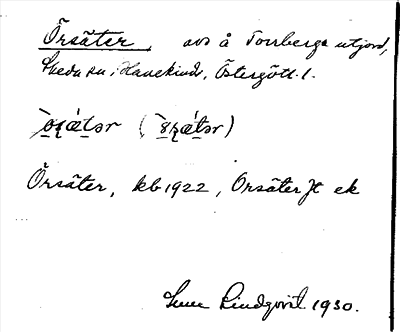 Örsäter, avs å Torrberga utjord,
Skeda sn, Hanekinds, Östergötl. l.
Örsäter, kb 1922, Orsäter Jt ek
Sune Lindqvist 1930.